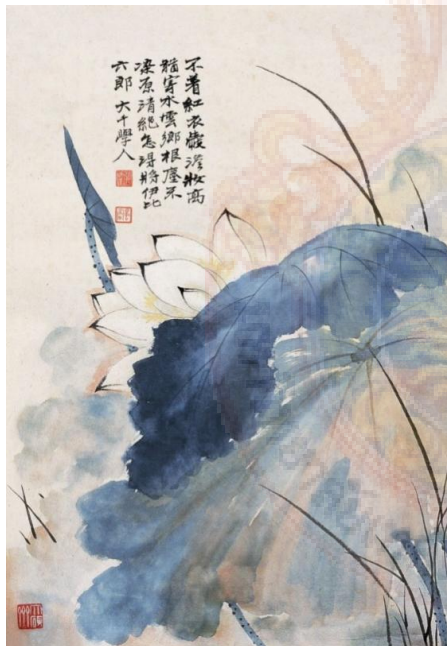 不着紅衣澹妝高
寄水雲鄉根塵不
染原清絕怎得將伊比
六郎 大千學人